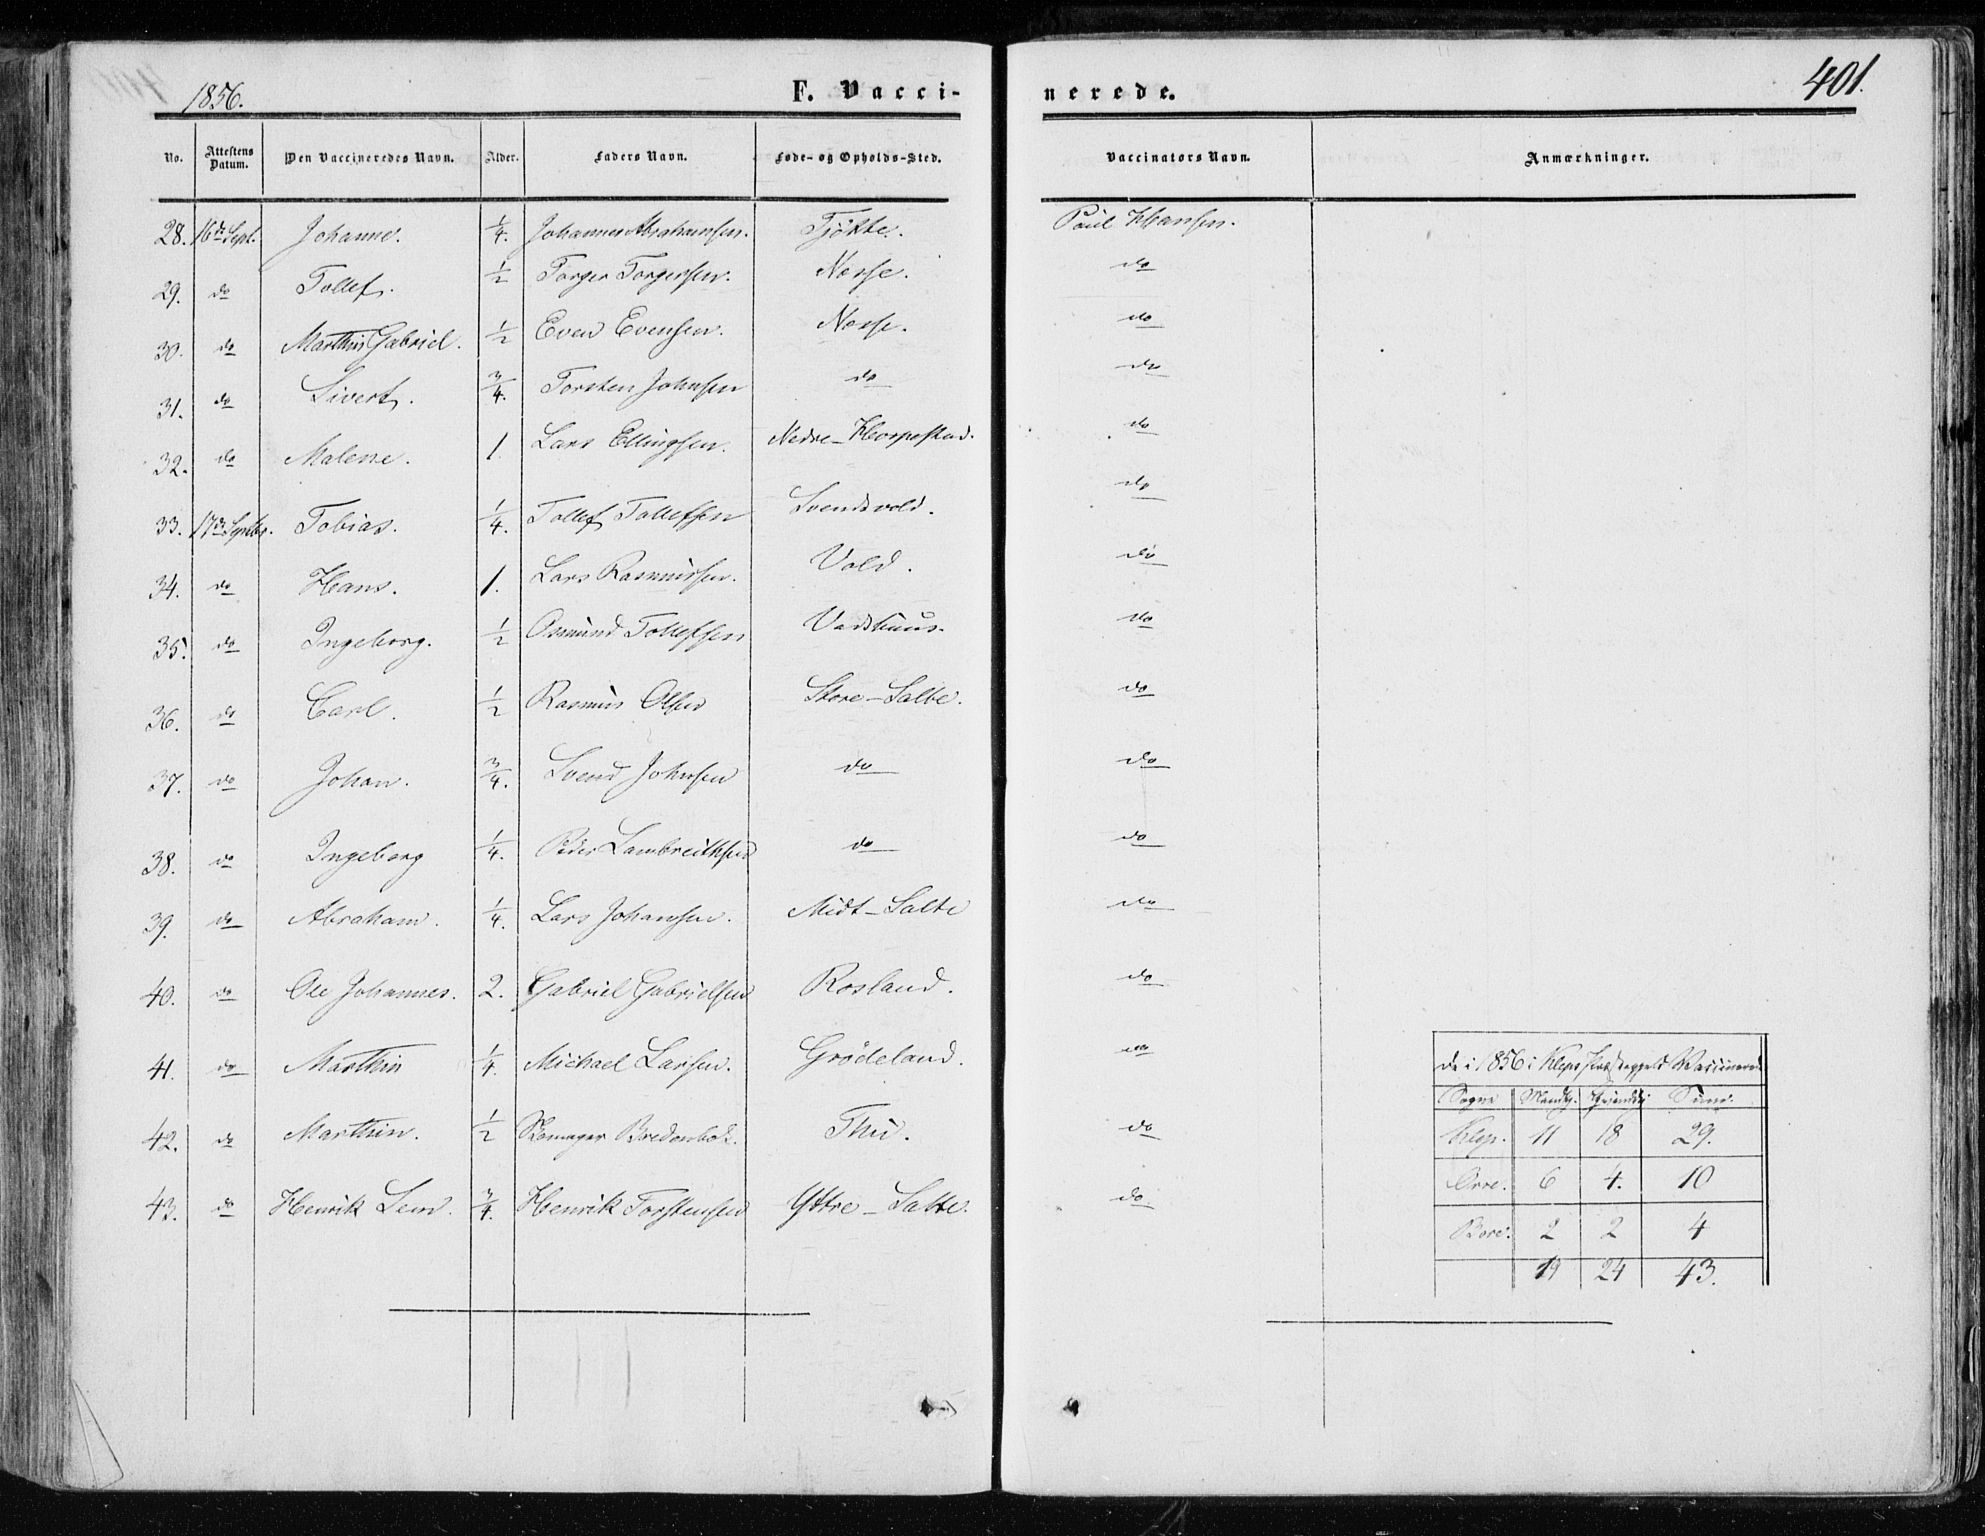 1856.
F. Vacci-
nerede.
401.
No. Attestens Datum. Den Vaccineredes Navn. Alder. Faders Navn. Føde- og Opholds-Sted. Vaccinators Navn. Anmærkninger.
28. 16de Sept. Johanne. 1/4. Johannes Abrahamsen. Tjøtte. Paul Hansen.
29. do Tollef. 1/2 Torger Torgersen. Nærse. do
30. do Marthin Gabriel. 1/2 Even Evensen. Nærse. do
31. do Sivert. 3/4. Torsten Johnsen do do
32. do Malene. 1. Lars Ellingsen. Nedre-Horpestad. do
33. 17de Septbr. Tobias. 1/4. Tollef Tollefsen Svendsvold. do
34. do Hans. 1. Lars Rasmussen. Vold. do
35. do Ingeborg. 1/2 Osmund Tollefsen Vadshuus. do
36. do Carl. 1/2 Rasmus Olsen Store-Salte. do
37. do Johan. 3/4. Svend Johnsen do do
38. do Ingeborg 1/4. Peder Lambreithsen do do
39. do Abraham. 1/4. Lars Johansen. Midt-Salte do
40. do Ole Johannes. 2. Gabriel Gabrielsen Rosland. do
41. do Marthin 1/4. Michael Larsen. Grødeland. do
42. do Marthin. 1/2 Thu. do
43. do Henrik Lem. 3/4. Henrik Torstensen Yttre-Salte. do
de i 1856 i Kleps Præstegjeld Vaccinerede
Sogne Mandkj. Qvindekj Sum.
Klep. 11 18 29.
Orre. 6 4. 10
Bore. 2 2 4
19 24 43.